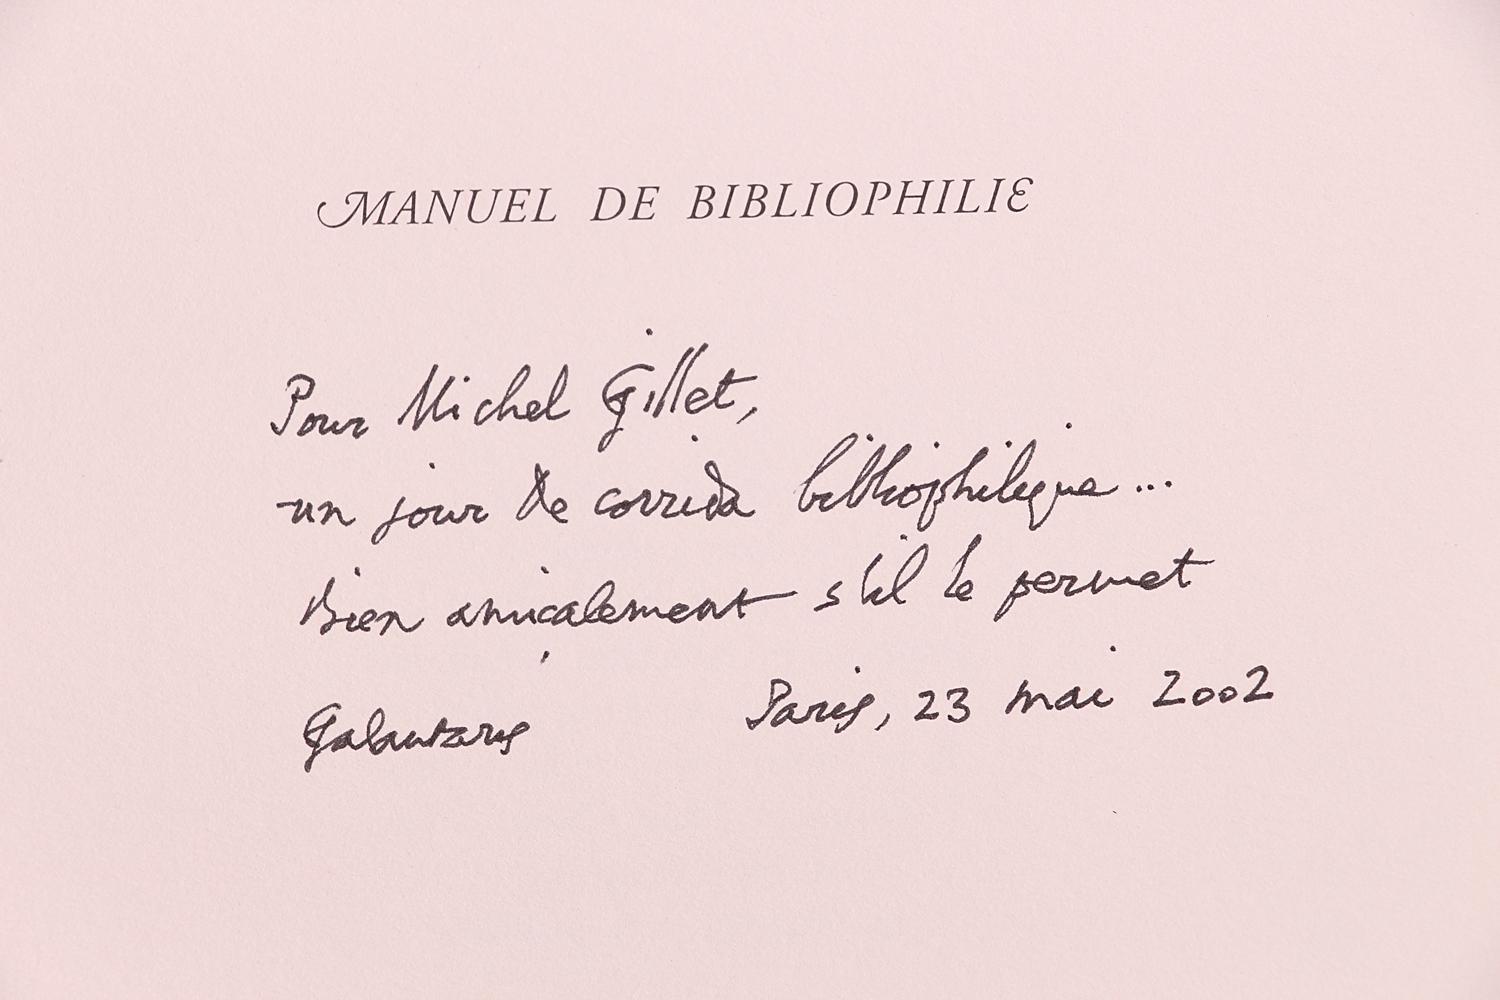 MANUEL DE BIBLIOPHILIE
Pour Michel Gillet,
un jour de corrida bibliophilique...
Bien amicalement s'il le permet
Galantaris
Paris, 23 mai 2002